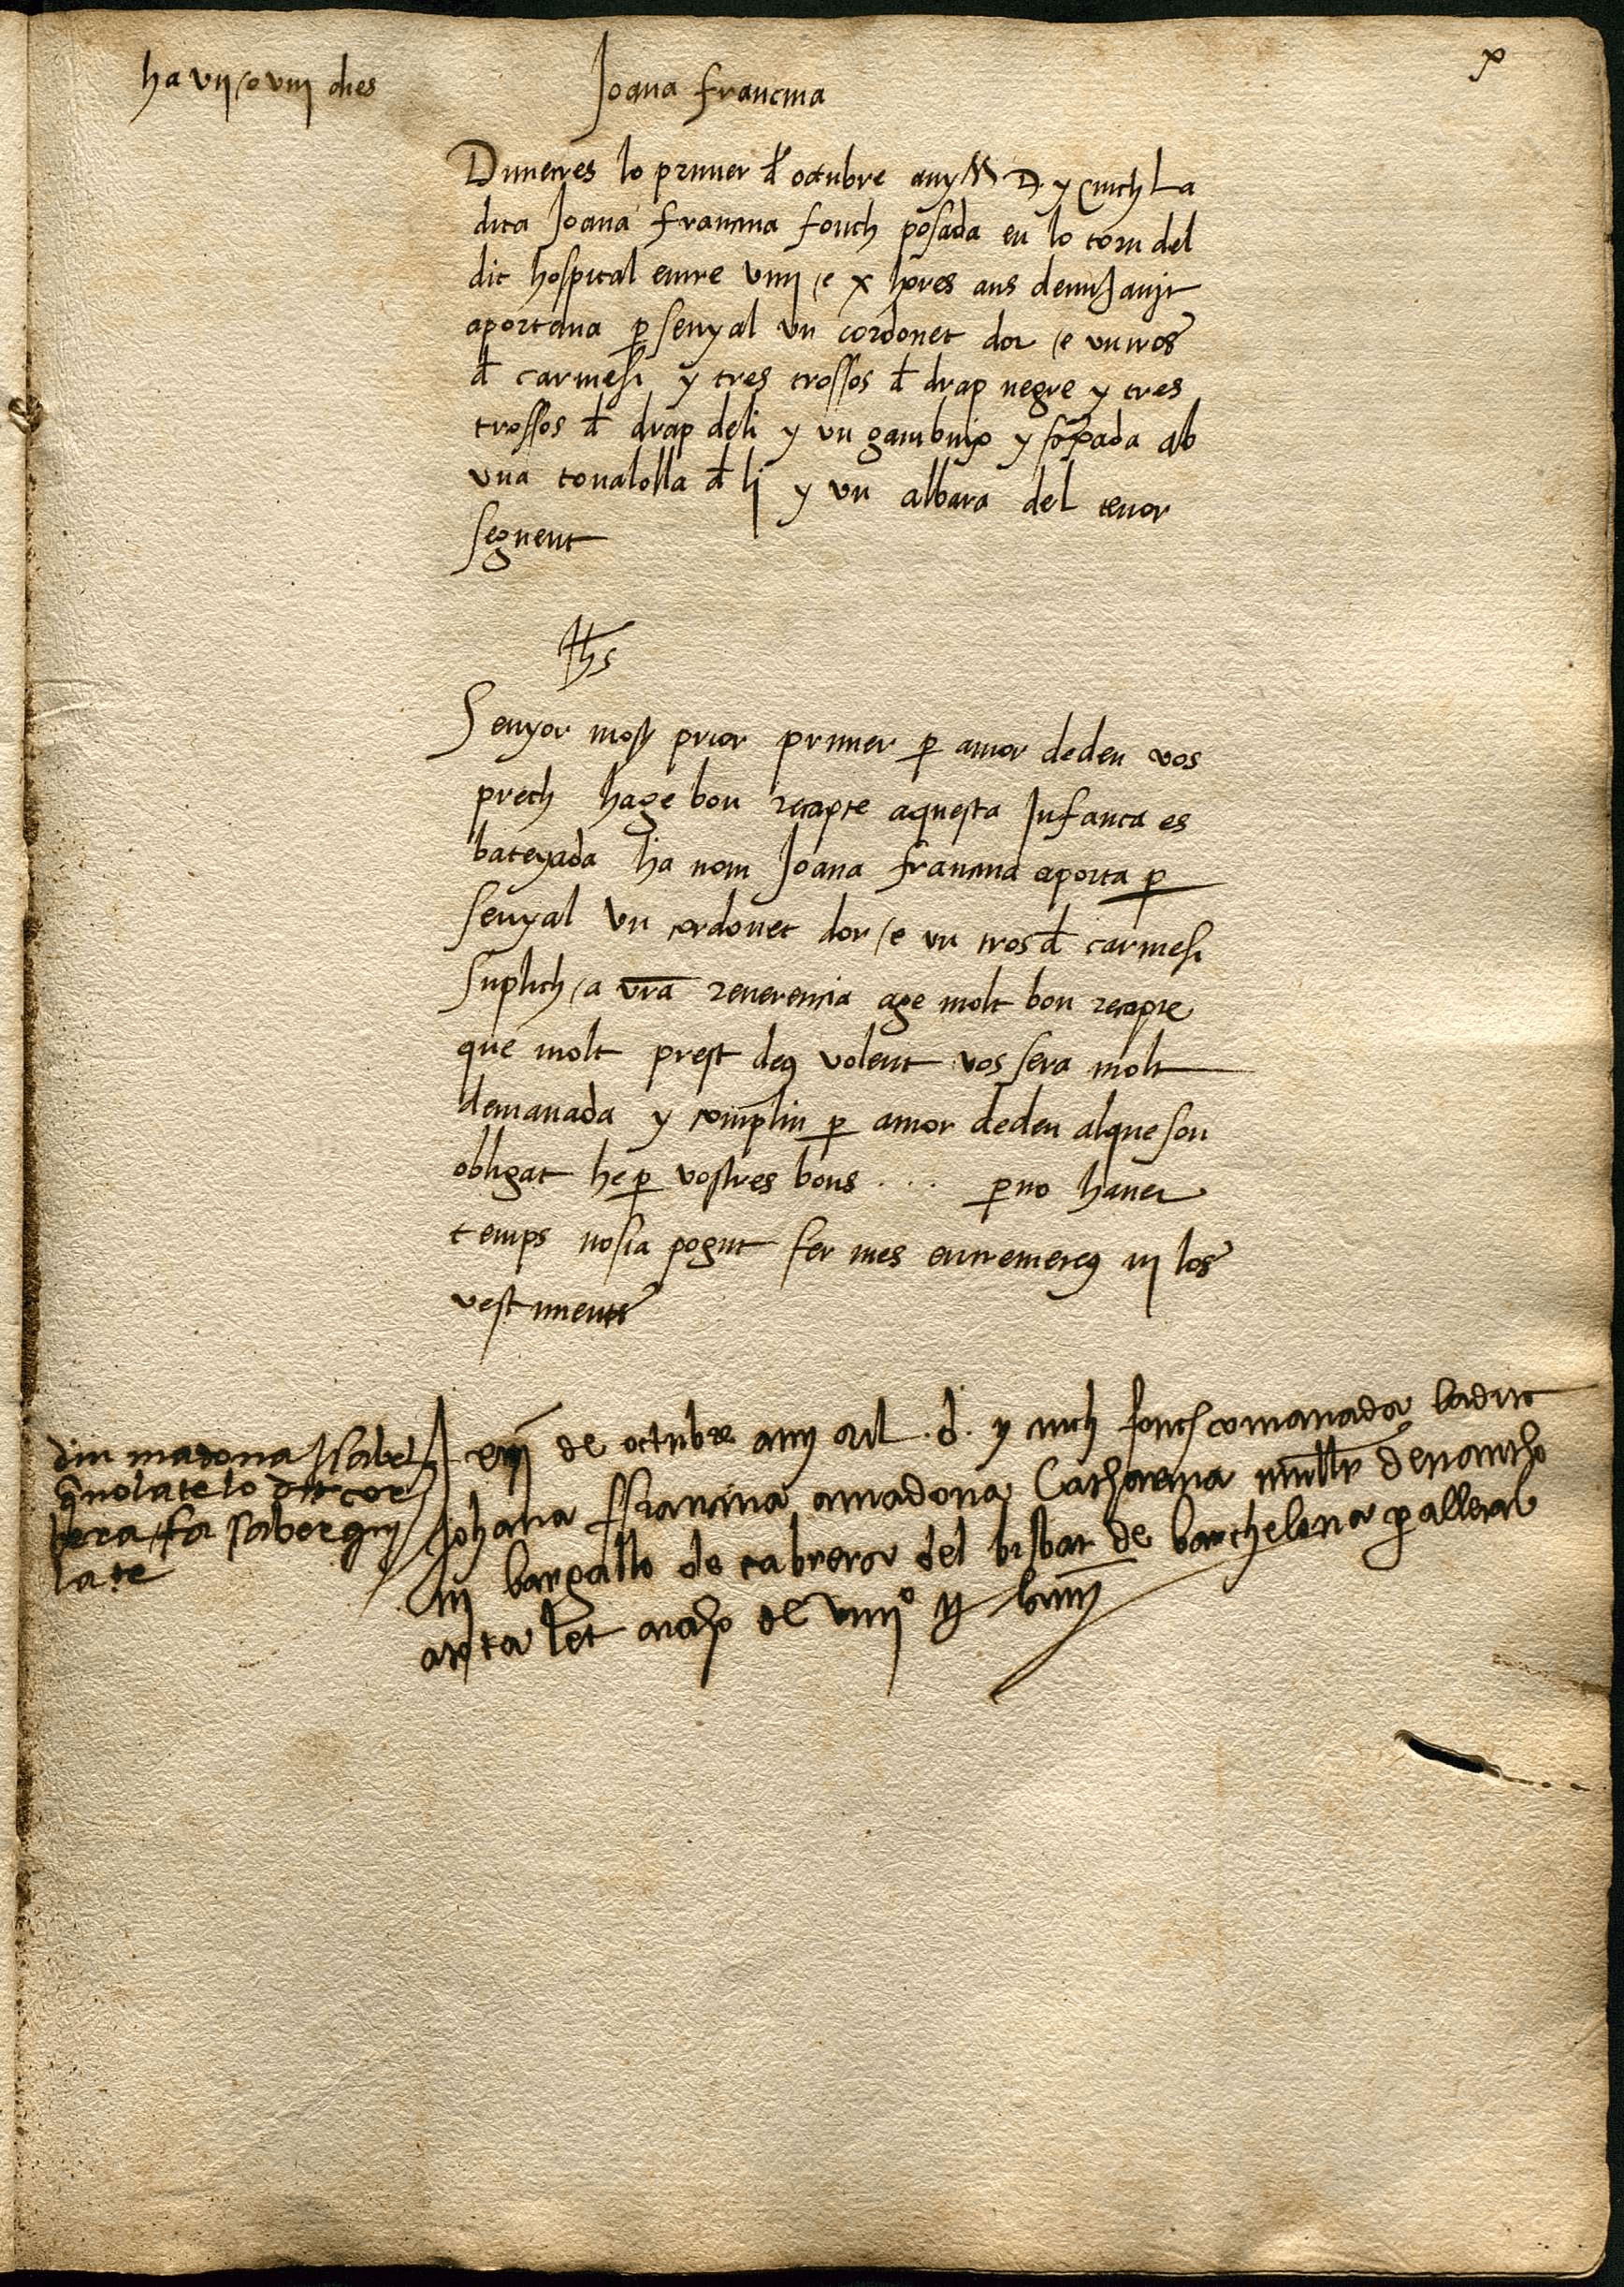 x
ha vij o viij dies
Joana francina
Dimecres lo primer d octubre any M D. y Cinch La
dita Joana francina fonch posada en lo torn del
dit hospital entre viiij e x hores ans de mija nit
aportava p senyal un cordonet dor e un tros
d carmesi y tres trossos d drap negre y tres
trossos d drap de li y un gambuix y faxada ab
una tovalolla d li y un albara del tenor
seguent
Jhs
Senyor mosr prior primer p amor de deu vos
prech hage bon recapte aquesta Infanta es
batejada ha nom Joana francina aporta p
senyal un cordonet dor e un tros d carmesi
suplich a vra reverencia age molt bon recapte
que molt prest deu volent vos sera molt
demanada y compliu p amor de deu al que sou
obligat he p vostres bons . . . p no haver
temps no sia pogut fer mes entremeres en los
vestiments
de octubre any Mil .d. y cinch fonch comanada la dita
Johana ffrancina a madona Catharina muller den antho
ni bargallo de cabrera del bisbat de barchelona p alletar
a cta llet a raho de viiij
diu madona Isabel
q no la te lo dit cor
bera fa saber qui
la te